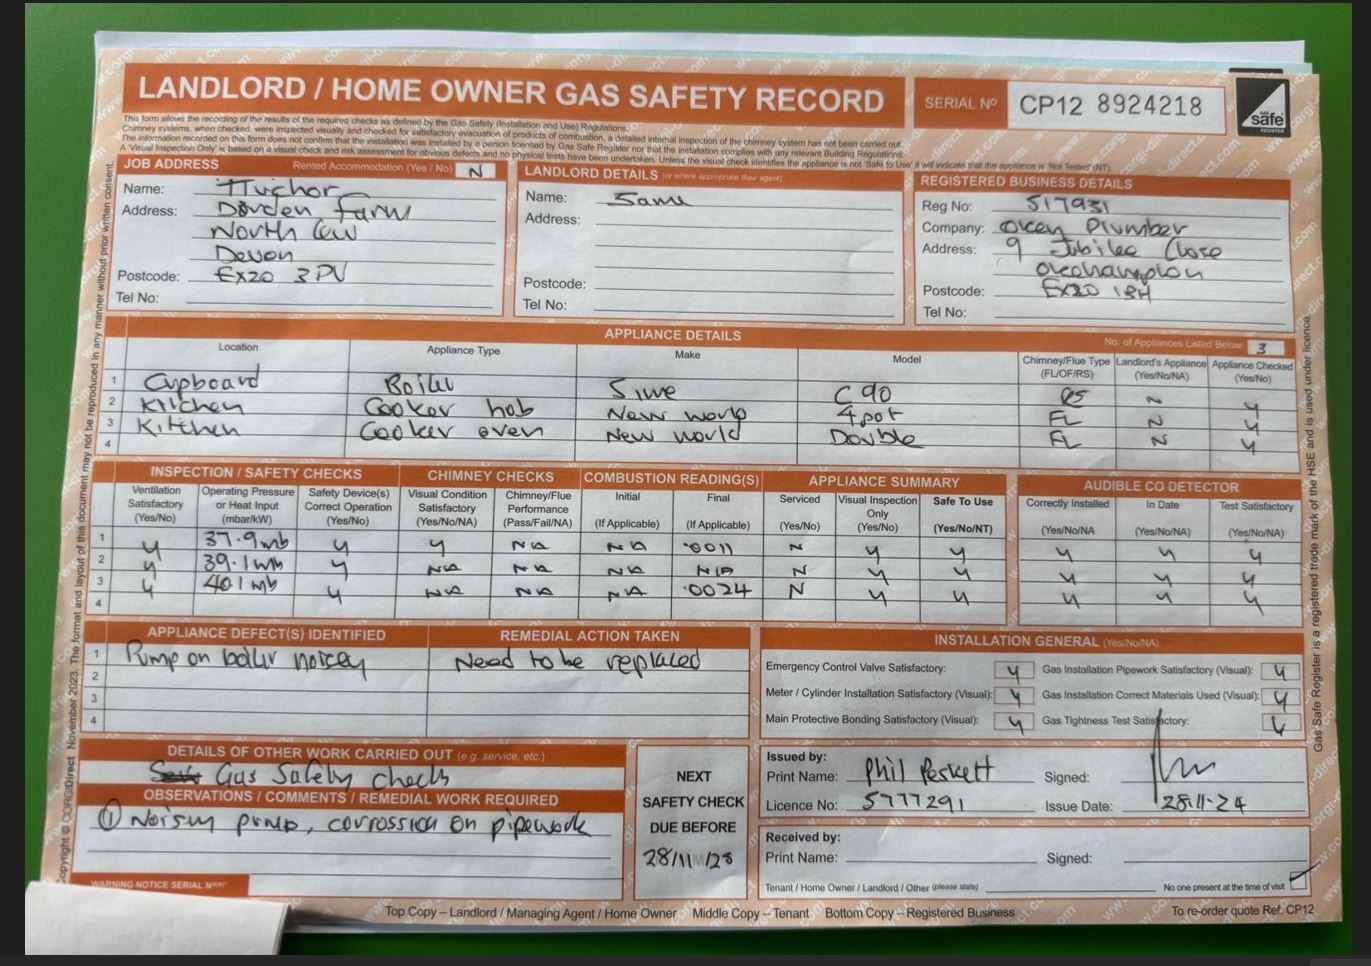 LANDLORD / HOME OWNER GAS SAFETY RECORD
SERIAL Nº CP12 8924218
safe
REGISTER
This form allows the recording of the results of the required checks as defined by the Gas Safety (Installation and Use) Regulations.
Chimney systems, when checked, were inspected visually and checked for satisfactory evacuation of products of combustion, a detailed internal inspection of the chimney system has not been carried out.
The information recorded on this form does not confirm that the installation was installed by a person licensed by Gas Safe Register nor that the installation complies with any relevant Building Regulations.
A 'Visual Inspection Only' is based on a visual check and risk assessment for obvious defects and no physical tests have been undertaken. Unless the visual check identifies the appliance is not 'Safe to Use' it will indicate that the appliance is 'Not Tested' (NT).
JOB ADDRESS Rented Accommodation (Yes / No) N
Name:
Address: Farm
North
Devon
Postcode: EX20 3PU
Tel No:
LANDLORD DETAILS (or where appropriate their agent)
Name: Same
Address:
Postcode:
Tel No:
REGISTERED BUSINESS DETAILS
Reg No: 517931
Company: Plumber
Address: 9 Jubilee Close
Okehampton
Postcode: EX20
Tel No:
APPLIANCE DETAILS
No. of Appliances Listed Below: 3
Location Appliance Type Make Model Chimney/Flue Type (FL/OF/RS) Landlord's Appliance (Yes/No/NA) Appliance Checked (Yes/No)
1 Cupboard Boiler C90 RS N Y
2 Kitchen Cooker hob New world 4pot FL N Y
3 Kitchen Cooker oven New world Double FL N Y
4
INSPECTION / SAFETY CHECKS CHIMNEY CHECKS COMBUSTION READING(S) APPLIANCE SUMMARY AUDIBLE CO DETECTOR
Ventilation Satisfactory (Yes/No) Operating Pressure or Heat Input (mbar/kW) Safety Device(s) Correct Operation (Yes/No) Visual Condition Satisfactory (Yes/No/NA) Chimney/Flue Performance (Pass/Fail/NA) Initial (If Applicable) Final (If Applicable) Serviced (Yes/No) Visual Inspection Only (Yes/No) Safe To Use (Yes/No/NT) Correctly Installed (Yes/No/NA In Date (Yes/No/NA) Test Satisfactory (Yes/No/NA)
1 Y 37.9mb Y Y NA NA .0011 N Y Y Y Y Y
2 Y 39.1mb Y NA NA NA N/A N Y Y Y Y Y
3 Y 40.1mb Y NA NA NA .0024 N Y Y Y Y Y
4
APPLIANCE DEFECT(S) IDENTIFIED REMEDIAL ACTION TAKEN
1 Pump on boiler noisey Need to be replaced
2
3
4
INSTALLATION GENERAL (Yes/No/NA)
Emergency Control Valve Satisfactory: Y Gas Installation Pipework Satisfactory (Visual): Y
Meter / Cylinder Installation Satisfactory (Visual): Y Gas Installation Correct Materials Used (Visual): Y
Main Protective Bonding Satisfactory (Visual): Y Gas Tightness Test Satisfactory: Y
DETAILS OF OTHER WORK CARRIED OUT (e.g. service, etc.)
Gas Safety checks
OBSERVATIONS / COMMENTS / REMEDIAL WORK REQUIRED
① Noisy pump, corrossion on pipework
WARNING NOTICE SERIAL Nº(s)
NEXT
SAFETY CHECK
DUE BEFORE
28/11/25
Issued by:
Print Name: Phil Peskett Signed:
Licence No: 5777291 Issue Date: 28.11.24
Received by:
Print Name: Signed:
Tenant / Home Owner / Landlord / Other (please state) No one present at the time of visit
Top Copy – Landlord / Managing Agent / Home Owner Middle Copy – Tenant Bottom Copy – Registered Business To re-order quote Ref. CP12
Copyright © CORGIDirect November 2023. The format and layout of this document may not be reproduced in any manner without prior written consent.
Gas Safe Register is a registered trade mark of the HSE and is used under licence.